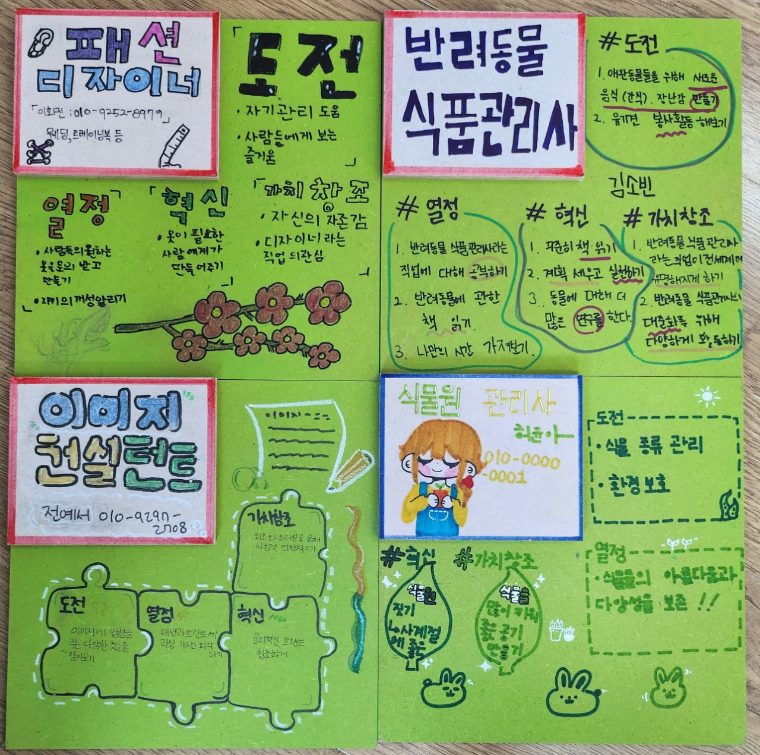 패션
디자이너
「이화진 : 010-9252-8979」
웨딩, 트레이닝복 등
「도전
• 자기관리 도움
• 사람들에게 보는
즐거움
열정
• 사람들의 원하는
옷을
받고
만들기
• 자기의 개성알리기
혁신
• 옷이 필요한
사람에게 가
만들어주기
가치창조
• 자신의 자존감
• 디자이너라는
직업 의관심
반려동물
식품관리사
#도전
1. 애완동물들을 위해 새로운
음식(간식), 장난감 만들기
2. 유기견 봉사활동 해보기
김소빈
# 열정
1. 반려동물 식품관리사라는
직업에 대해 공부하기
2. 반려동물에 관한
책 읽기
3. 나만의 시간 가져보기.
# 혁신
1. 꾸준히 책 읽기
2. 계획 세우고 실천하기
3. 동물에 대해 더
많은 연구를 한다.
#가치창조
1. 반려동물 식품관리사
라는 직업이 전세계에
유명해지게 하기
2. 반려동물 식품관리사
대중화를 위해
다양하게 활동하기
이미지
컨설턴트
전예서 010-9297-
2708
이미지~
가치창조
도전
열정
혁신
식물원 관리사
허윤아
010-0000
-0001
도전
• 식물 종류 관리
• 환경보호
#혁신
식물원
짓기
사계절
#가치창조
식물을
많이 키워
좋은 공기
만들기
열정
• 식물들의 아름다움과
다양성을 보존 !!